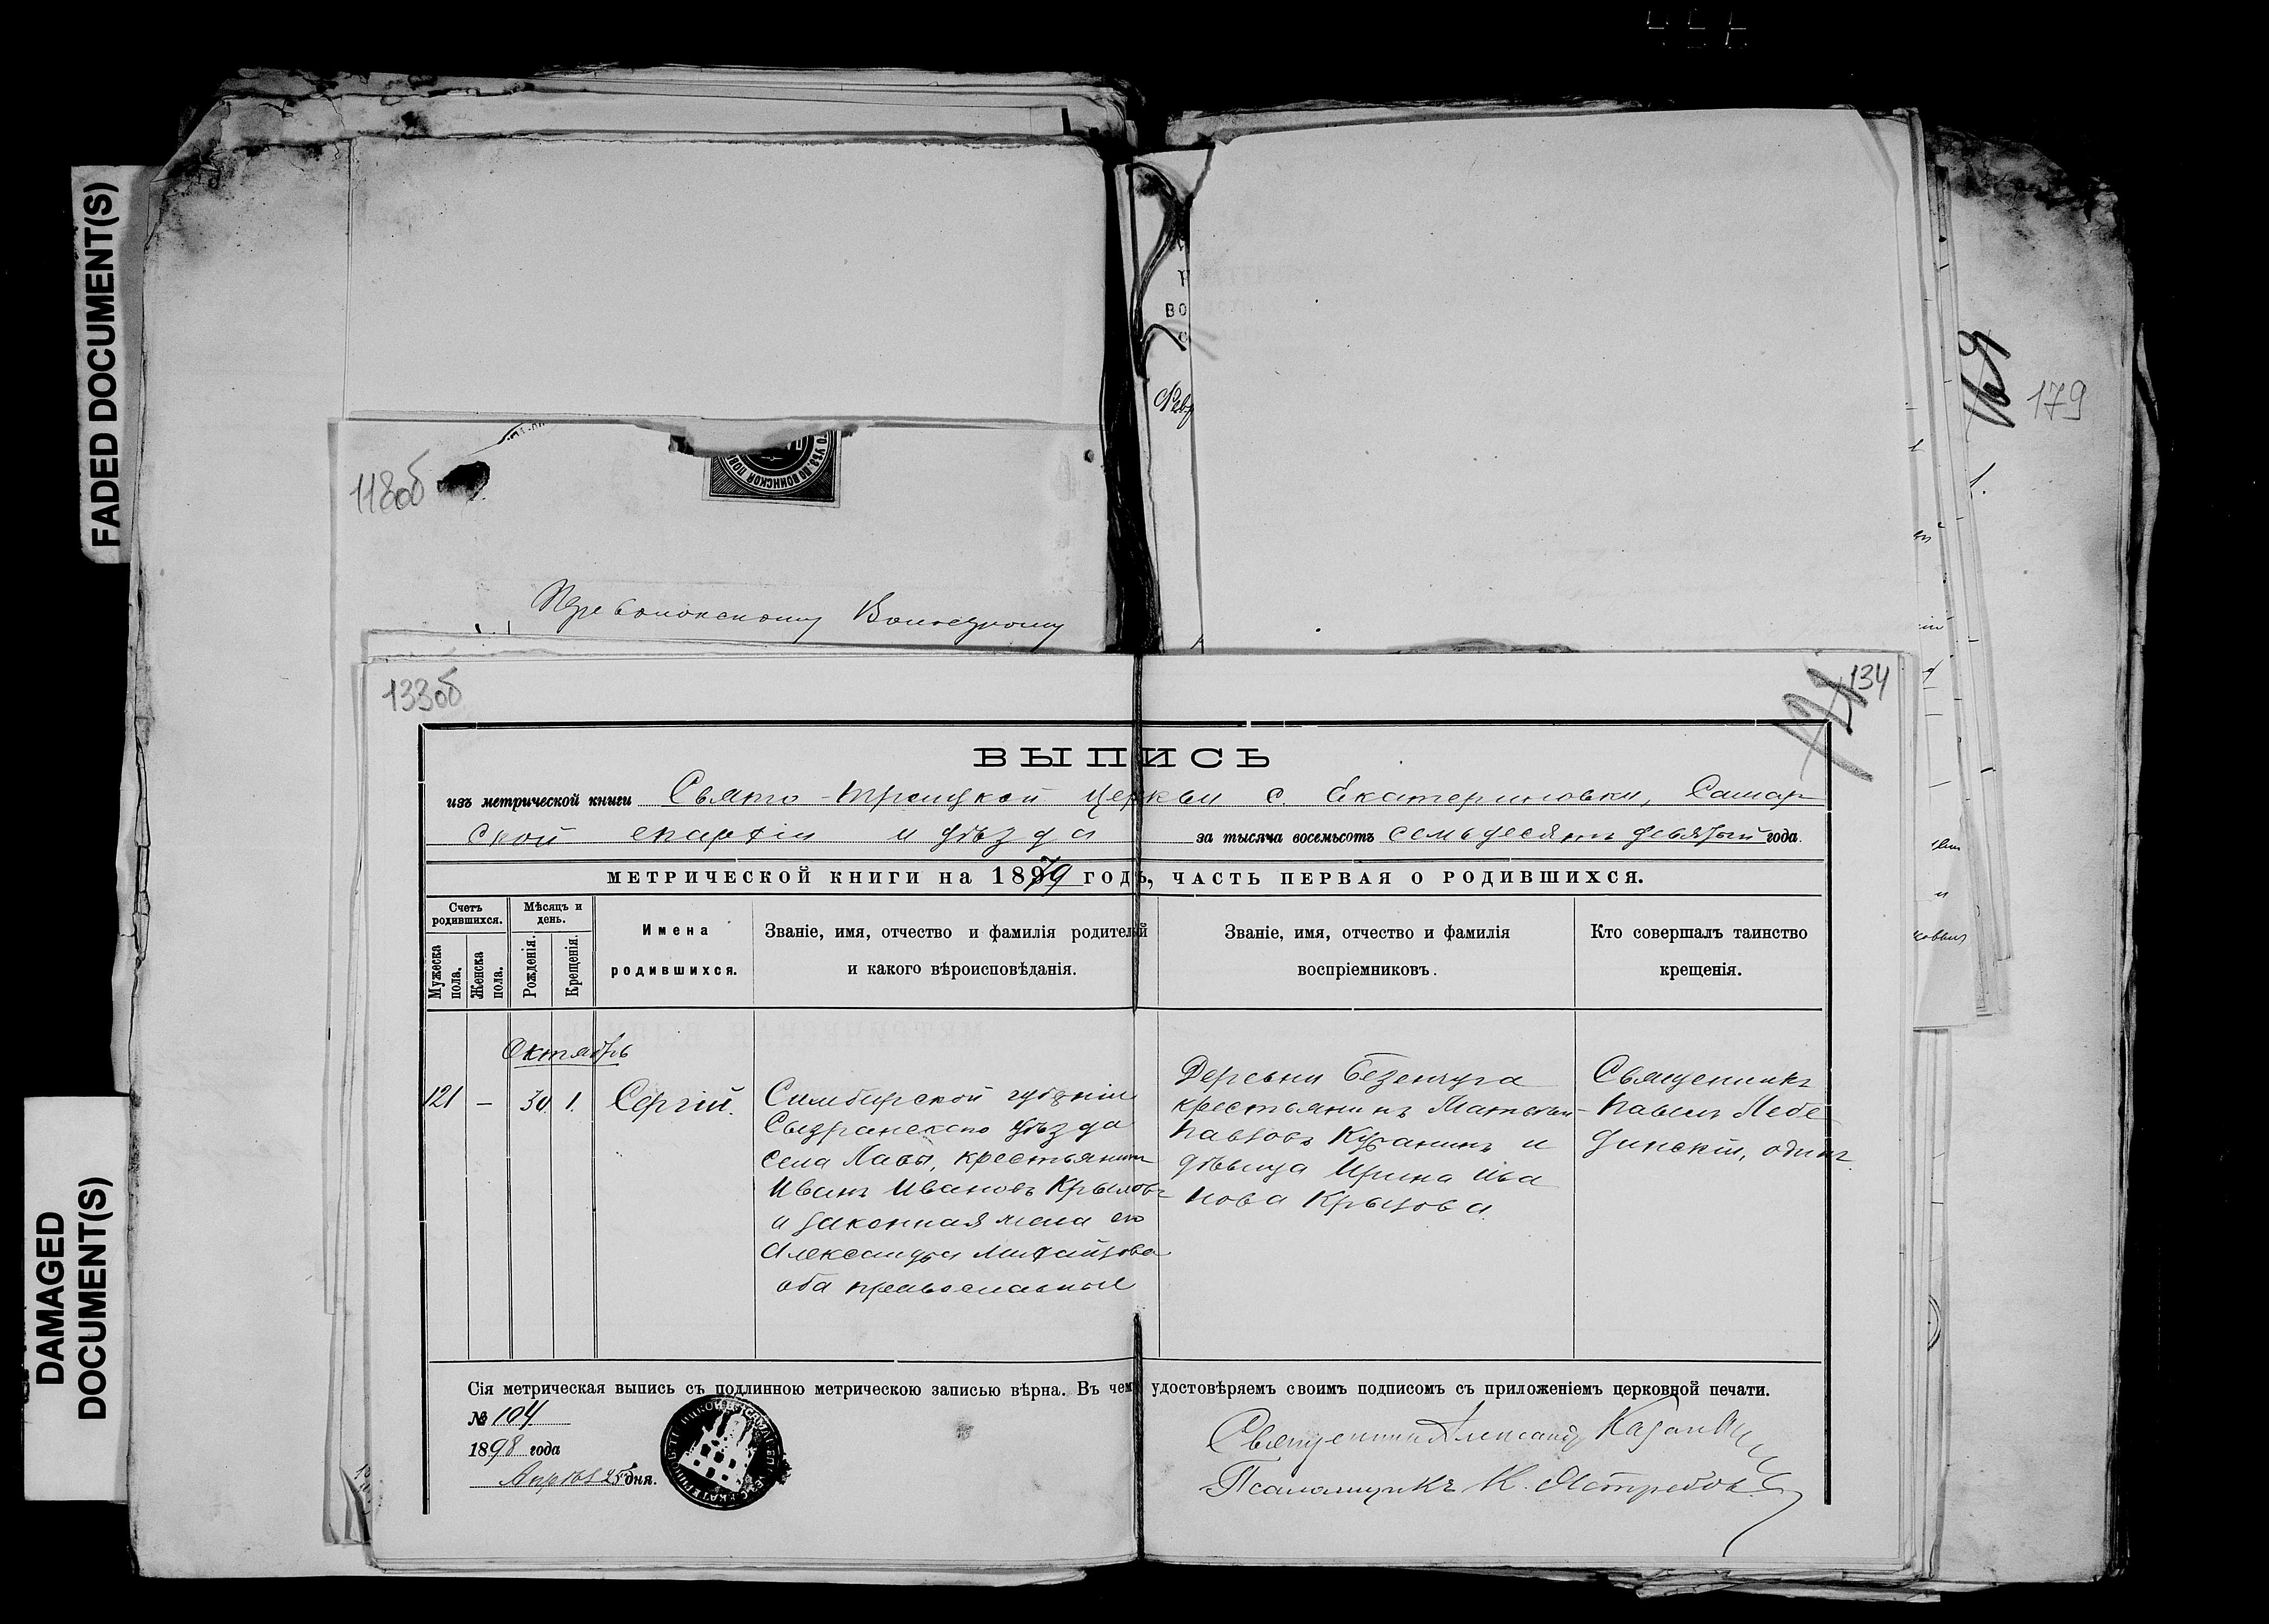 FADED DOCUMENT(S)
DAMAGED
DOCUMENT(S)
118об
Волостному
ВО
179
133об
134
ВЫПИСЬ
изъ метрической книги Свято-Троицкой церкви с. Екатериновки, Самар
ской епархіи и уѣзда за тысяча восемьсотъ семьдесятъ девятый года.
МЕТРИЧЕСКОЙ КНИГИ НА 1879 ГОДЪ, ЧАСТЬ ПЕРВАЯ О РОДИВШИХСЯ.
Счетъ родившихся.
Мужеска пола.
Женска пола.
Мѣсяцъ и день.
Рожденія.
Крещенія.
Имена
родившихся.
Званіе, имя, отчество и фамилія родителей
и какого вѣроисповѣданія.
Званіе, имя, отчество и фамилія
воспріемниковъ.
Кто совершалъ таинство
крещенія.
Октябрь
121 — 30. 1. Сергій.
Симбирской губерніи
Сызранскаго уѣзда
села Лавы, крестьянинъ
Иванъ Ивановъ Крыловъ
и законная жена его
Александра Михайлова
оба православные
Деревни Безенчуга
крестьянинъ Матвѣй
Павловъ Куранинъ и
дѣвица Ирина Ива
нова Крылова.
Священникъ
Павелъ Лебе
динскій, одинъ.
Сія метрическая выпись съ подлинною метрическою записью вѣрна. Въ чемъ удостовѣряемъ своимъ подписомъ съ приложеніемъ церковной печати.
№ 104
1898 года
Апрѣля 25 дня.
Священникъ Александръ
Псаломщикъ К. Ястребовъ